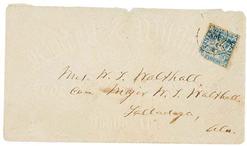 Mrs. W. T. Walthall
Care Major W. T. Walthall
Talladega,
Ala.